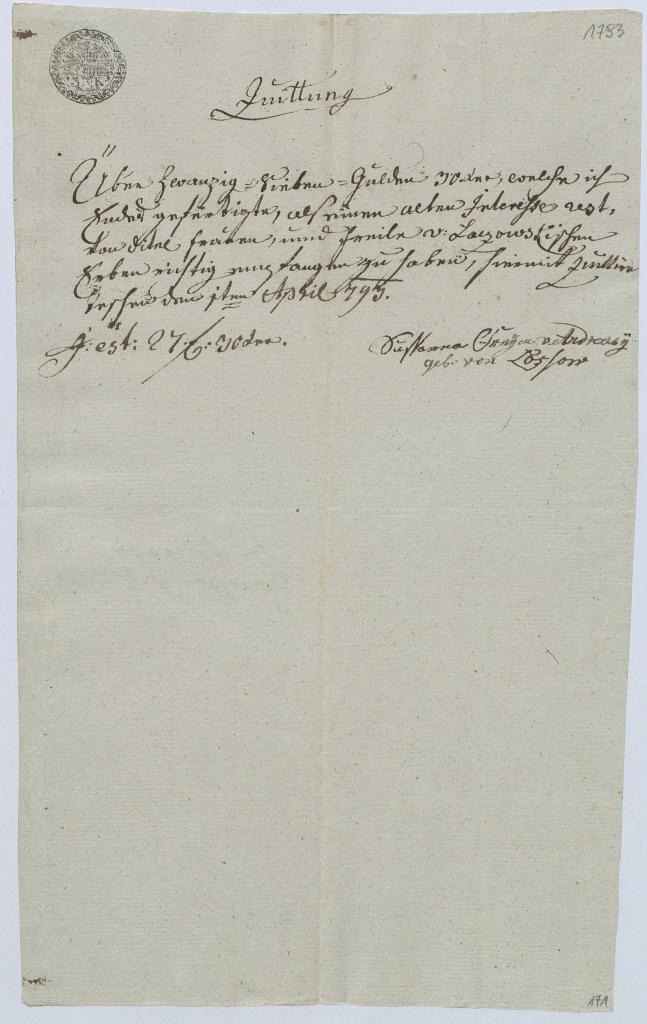 1793
Quittung
Über Zwanzig-Sieben=Gulden 30 xer, welche ich
Endes gefertigte, als einen alten Interesse rest,
Von Titel frauen, und Freile v: Lazowskischen
Erben richtig empfangen zu haben, hiermit Quittire
Teschen den 1ten April 793.
id est: 27 f: 30 xer.
Sussanna v: Andreasy
geb: von Lossow
171